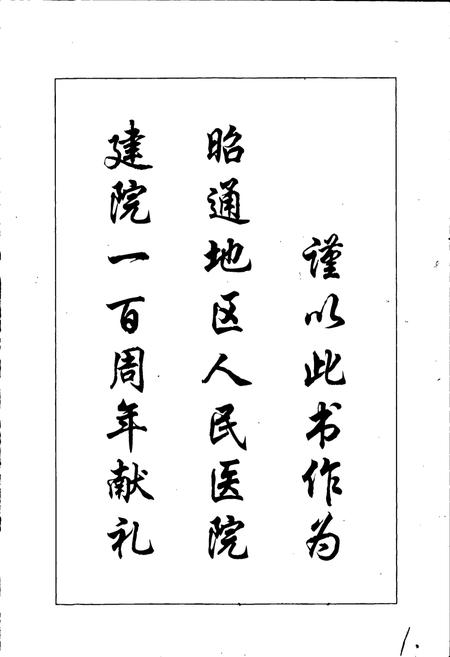 谨以此书作为
昭通地区人民医院
建院一百周年献礼
1.